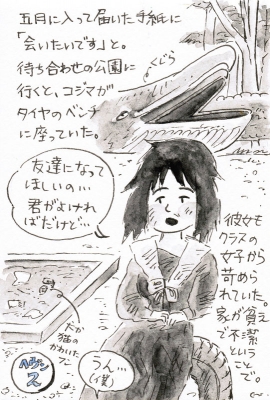 五月に入って届いた手紙に
「会いたいです」と。
待ち合わせの公園に
行くと、コジマが
タイヤのベンチ
に座っていた。
くじら
友達になって
ほしいの…
君がよければ
ばだけど…
彼女も
クラスの
女子から
苛め
られていた。
家が貧乏
で不潔
という
ことで。
犬か
猫の
かわいた
フン
うん…
(僕)
ヘヴン
2